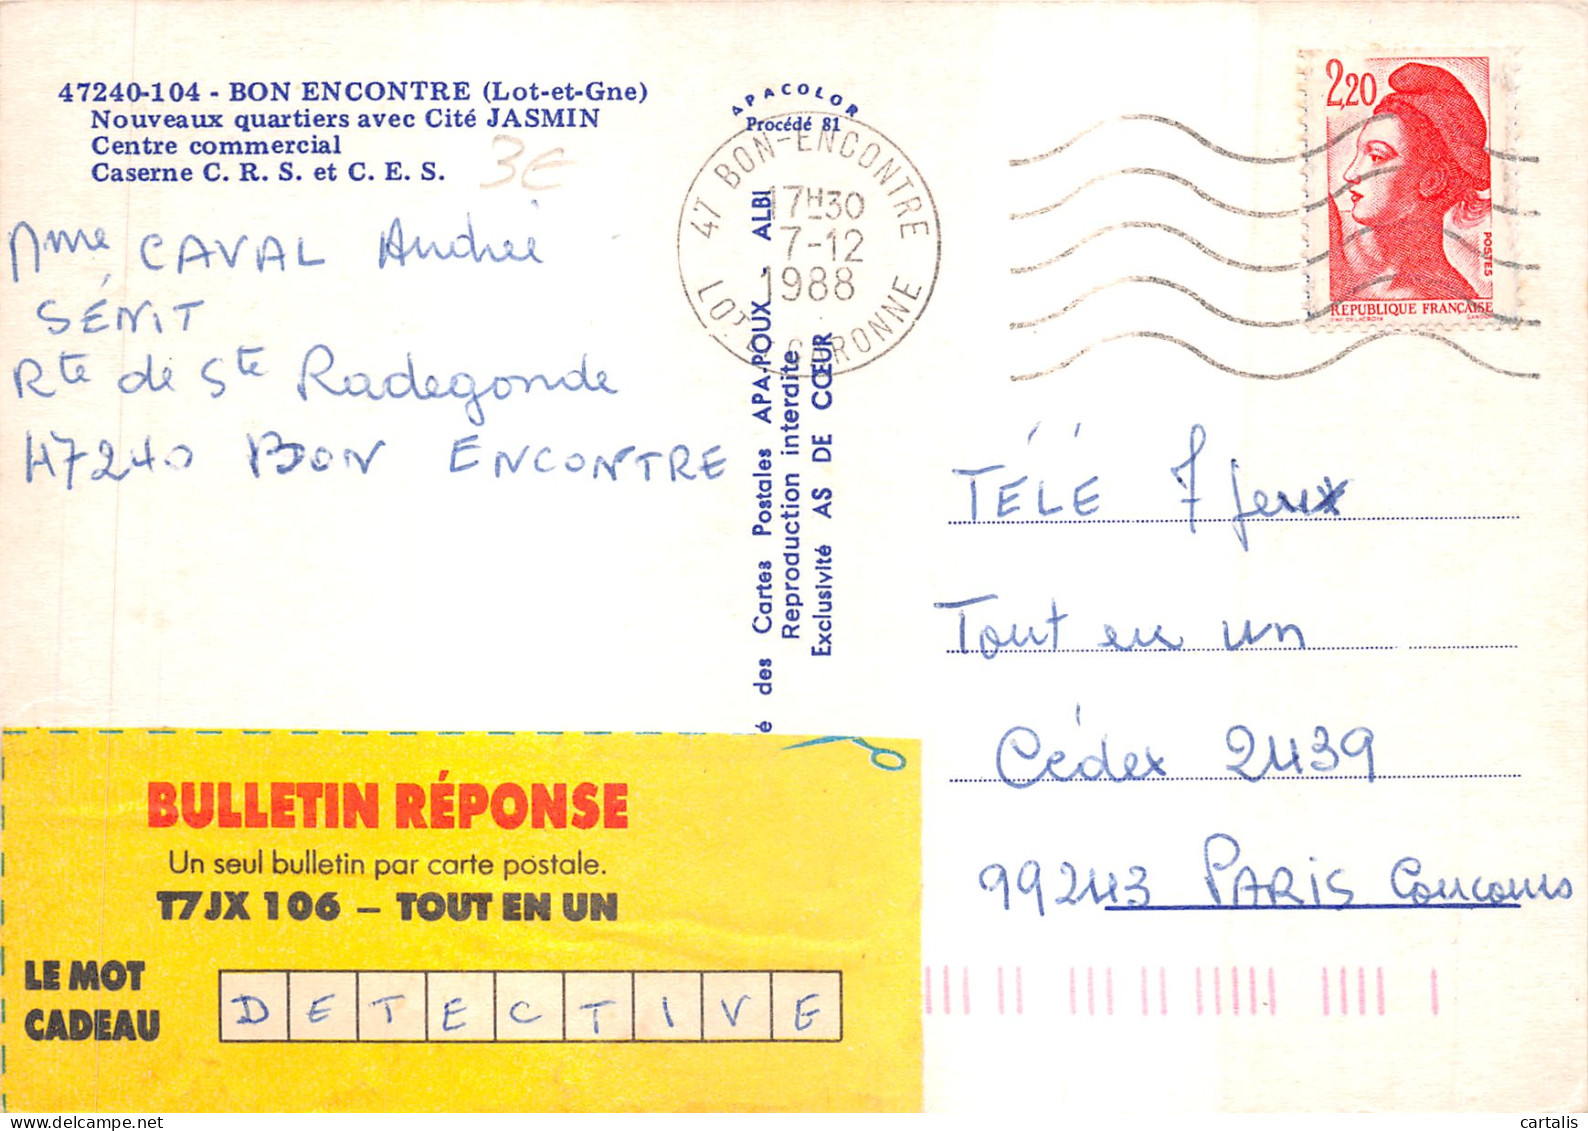 47240-104 - BON ENCONTRE (Lot-et-Gne)
Nouveaux quartiers avec Cité JASMIN
Centre commercial
Caserne C. R. S. et C. E. S.
3€
Mme CAVAL Andrée
SÉNIT
Rte de Ste Radegonde
47240 BON ENCONTRE
APACOLOR
Procédé 81
47 BON-ENCONTRE
17H30
7-12
1988
LOT GARONNE
é des Cartes Postales APA-POUX - ALBI
Reproduction interdite
Exclusivité AS DE CŒUR
2,20
POSTES
REPUBLIQUE FRANÇAISE
TÉLÉ 7 Jeux
Tout en un
Cédex 2439
99243 PARIS Concours
BULLETIN RÉPONSE
Un seul bulletin par carte postale.
T7JX 106 – TOUT EN UN
LE MOT
CADEAU
DETECTIVE
cartalis
www.delcampe.net